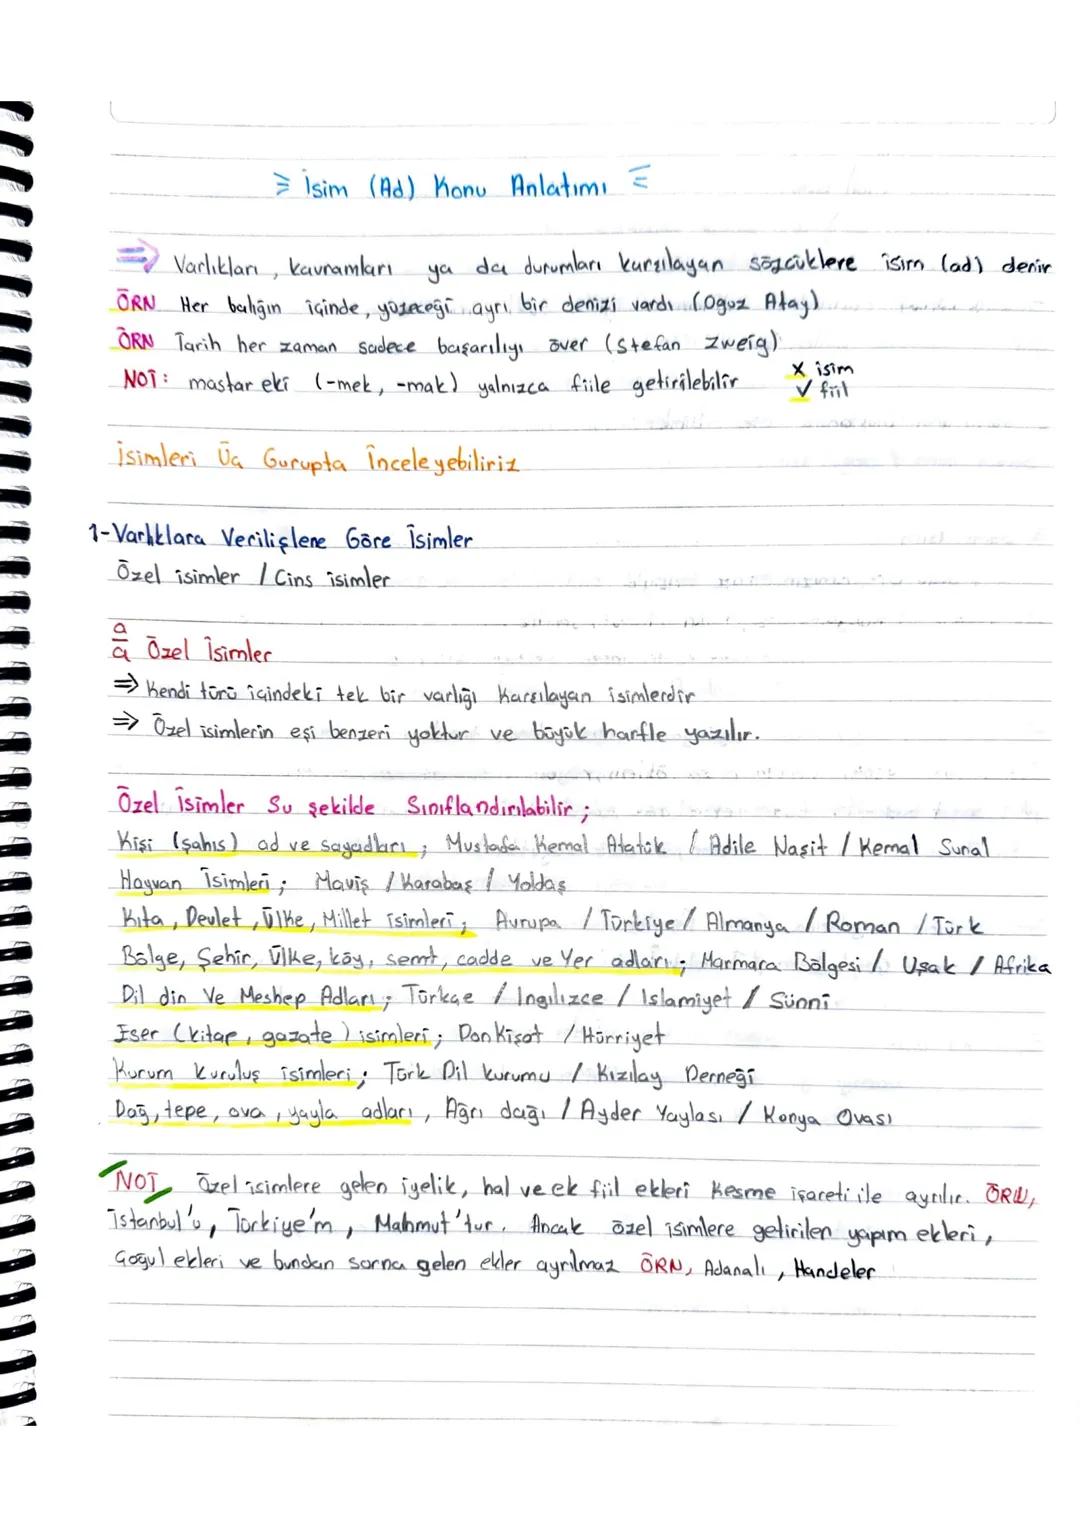 İsim (Ad) Konu Anlatımı
⇒ Varlıkları, kavramları ya da durumları karşılayan sözcüklere isim (ad) denir
ÖRN Her balığın içinde, yüzeceği ayrı bir denizi vardı (Oguz Atay)
ÖRN Tarih her zaman sadece başarılıyı över (Stefan Zweig)
NOT: mastar eki (-mek, -mak) yalnızca fiile getirilebilir X isim
✓ fiil
İsimleri Üç Gurupta İnceleyebiliriz
1-Varlıklara Verilişlene Göre İsimler
Özel isimler / Cins isimler
a
a Özel İsimler
⇒ Kendi türü içindeki tek bir varlığı karşılayan isimlerdir
⇒ Özel isimlerin eşi benzeri yoktur ve büyük harfle yazılır.
Özel İsimler Su şekilde Sınıflandırılabilir;
Kişi (şahıs) ad ve sayadları; Mustafa Kemal Atatük / Adile Naşit / Kemal Sunal
Hayvan İsimleri; Maviş / Karabaş / Yoldaş
Kıta, Devlet, Ülke, Millet isimleri; Avrupa / Türkiye / Almanya / Roman / Türk
Bölge, Şehir, Ülke, köy, semt, cadde ve Yer adları; Marmara Bölgesi / Uşak / Afrika
Dil din Ve Meshep Adları; Türkçe / Ingilizce / Islamiyet / Sünni
Eser (kitap, gazate) isimleri; Don Kişot / Hürriyet
Kurum kuruluş isimleri; Türk Dil kurumu / Kızılay Derneği
Dağ, tepe, ova, yayla adları, Ağrı dağı / Ayder Yaylası / Konya Ovası
NOT, Özel isimlere gelen iyelik, hal ve ek fiil ekleri kesme işareti ile ayrılır. ÖRN,
İstanbul'u, Türkiye'm, Mahmut'tur. Ancak özel isimlere getirilen yapım ekleri,
Çoğul ekleri ve bundan sorna gelen ekler ayrılmaz ÖRN, Adanalı, Handeler